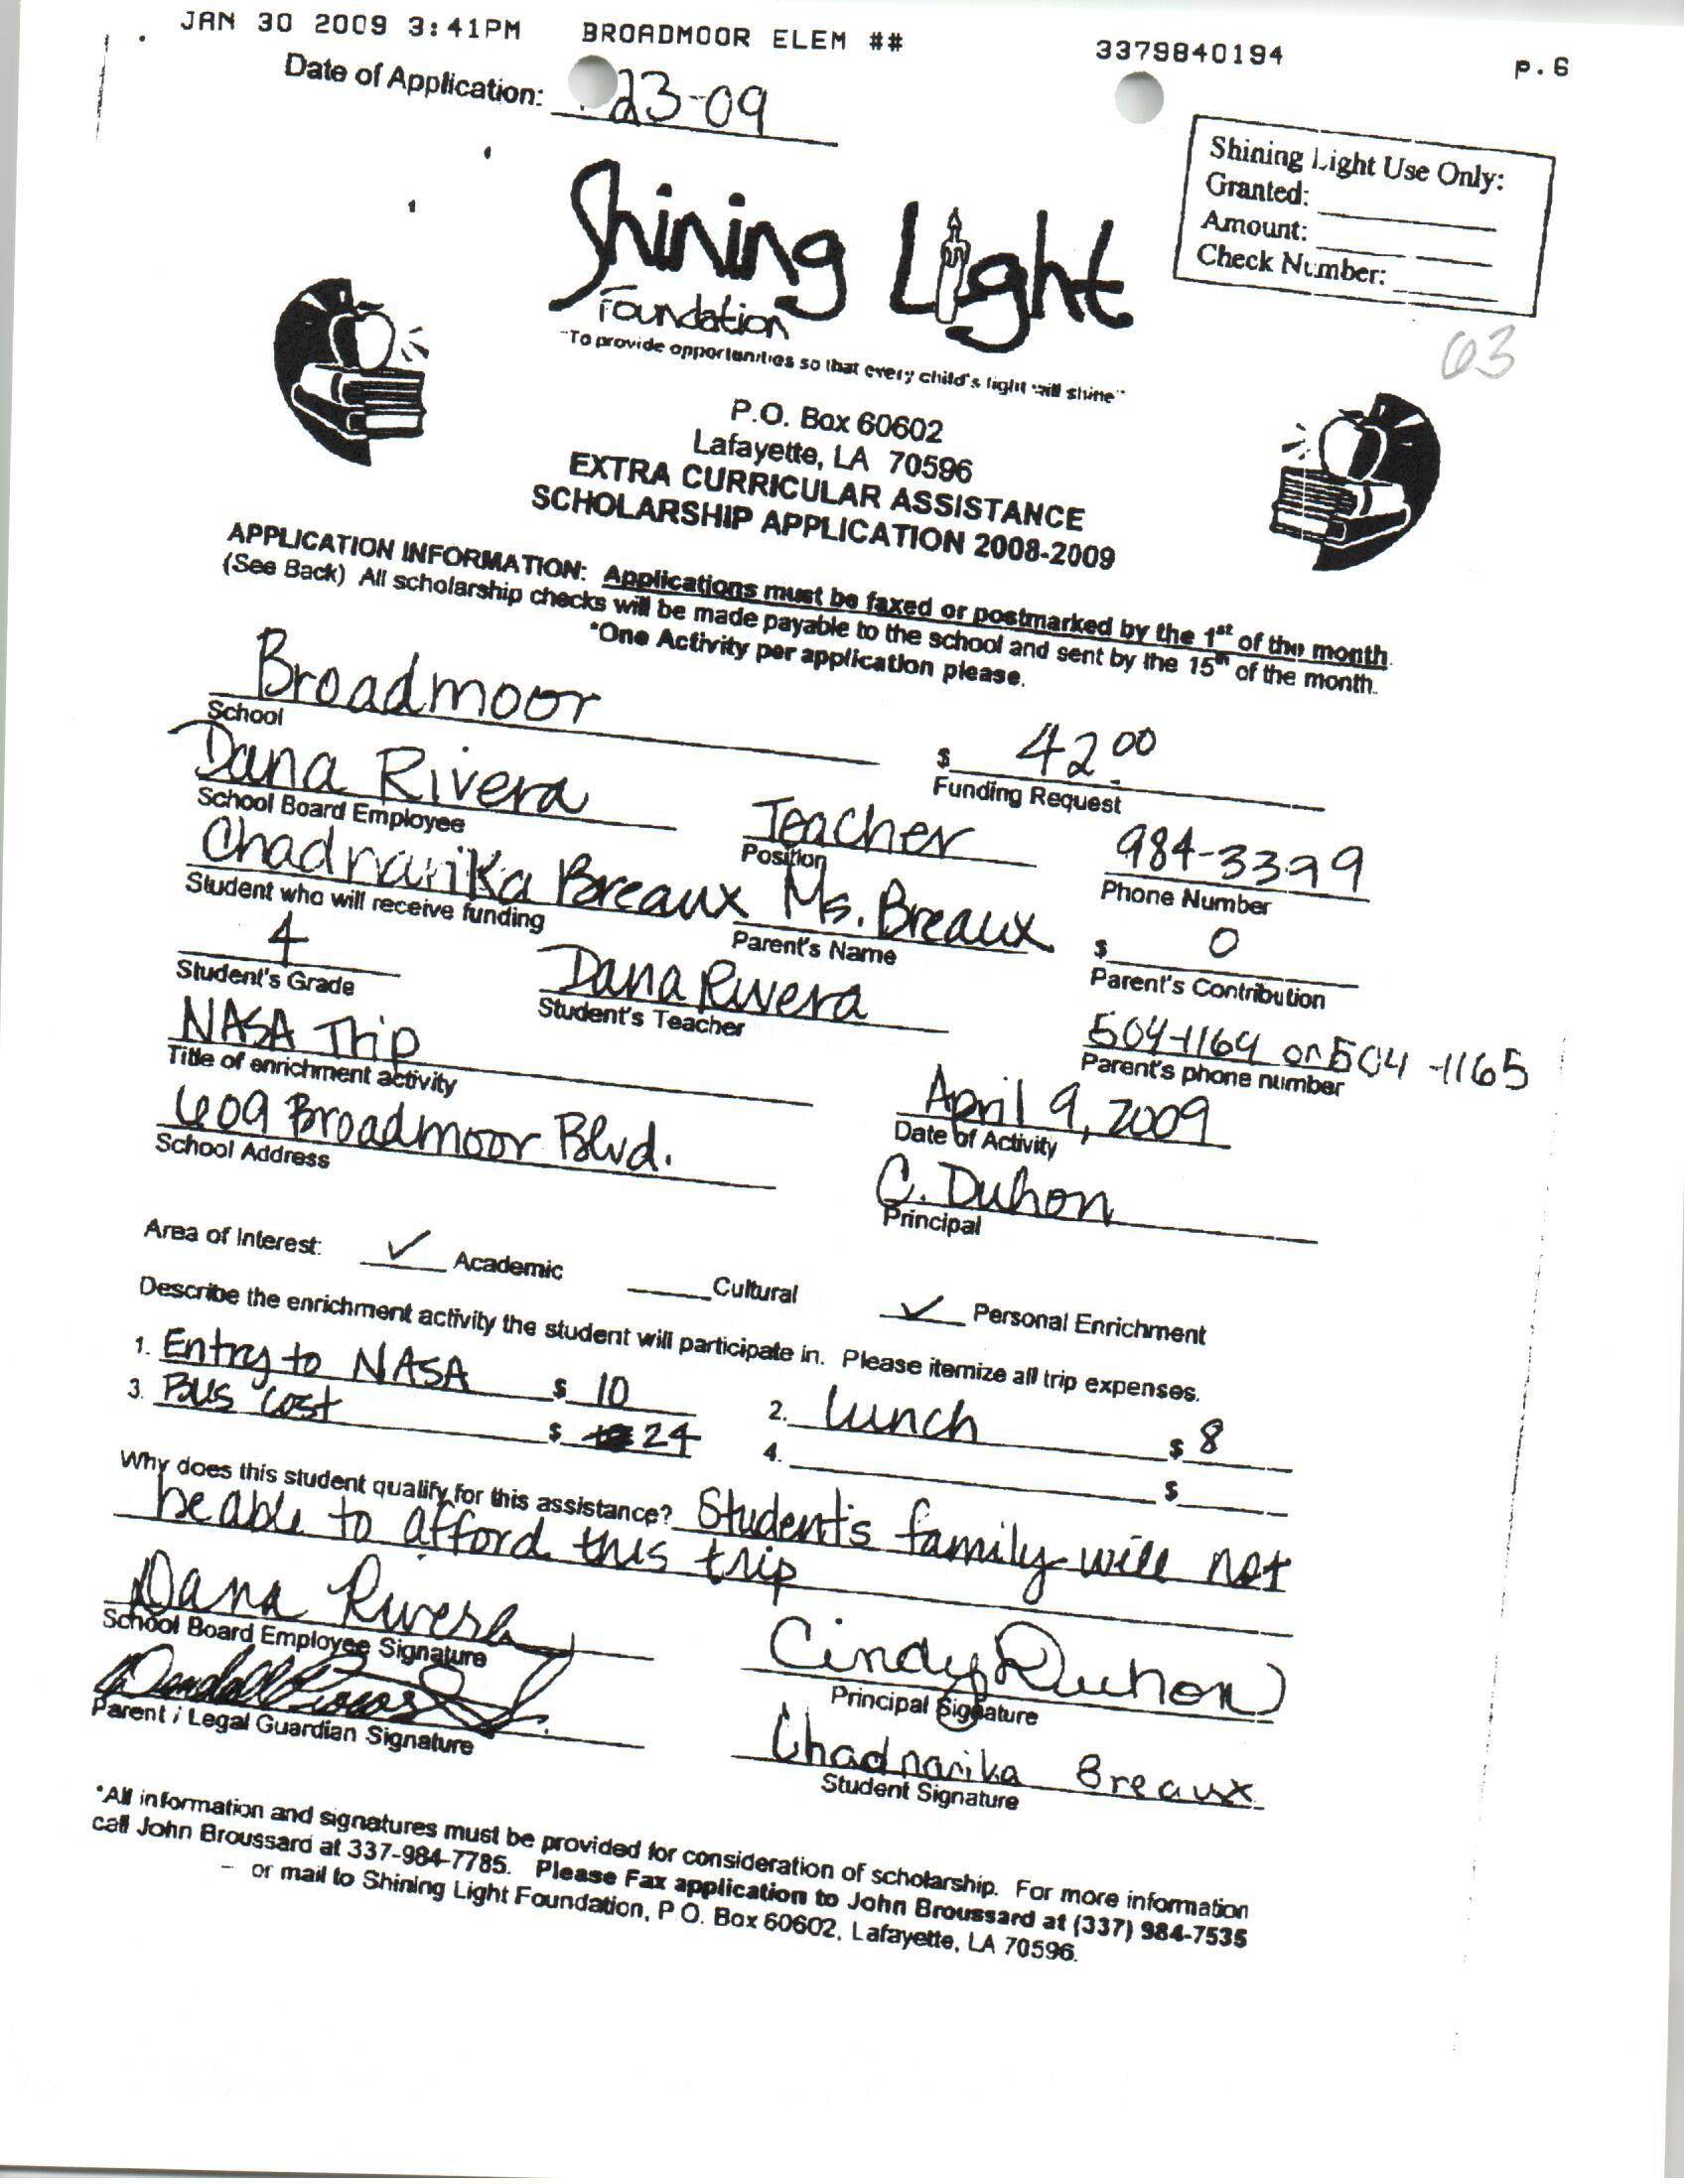 JAN 30 2009 3:41PM BROADMOOR ELEM ## 3379840194 p.6
Date of Application: 23-09
Shining Light Use Only:
Granted:
Amount:
Check Number:
Shining Light
Foundation
"To provide opportunities so that every child's light will shine"
63
P.O. Box 60602
Lafayette, LA 70596
EXTRA CURRICULAR ASSISTANCE
SCHOLARSHIP APPLICATION 2008-2009
APPLICATION INFORMATION: Applications must be faxed or postmarked by the 1st of the month.
(See Back) All scholarship checks will be made payable to the school and sent by the 15th of the month.
*One Activity per application please.
Broadmoor $ 42.00
School Funding Request
Dana Rivera Teacher 984-3399
School Board Employee Position Phone Number
Chadnarika Breaux Ms. Breaux $ 0
Student who will receive funding Parent's Name Parent's Contribution
4 Dana Rivera 504-1164 or 504-1165
Student's Grade Student's Teacher Parent's phone number
NASA Trip April 9, 2009
Title of enrichment activity Date of Activity
609 Broadmoor Blvd. C. Duhon
School Address Principal
Area of Interest: ✓ Academic Cultural ✓ Personal Enrichment
Describe the enrichment activity the student will participate in. Please itemize all trip expenses.
1. Entry to NASA $ 10 2. lunch $ 8
3. Bus cost $ 24 4. $
Why does this student qualify for this assistance? Student's family will not
be able to afford this trip
Dana Rivera Cindy Duhon
School Board Employee Signature Principal Signature
Chadnarika Breaux
Parent / Legal Guardian Signature Student Signature
*All information and signatures must be provided for consideration of scholarship. For more information
call John Broussard at 337-984-7785. Please Fax application to John Broussard at (337) 984-7535
– or mail to Shining Light Foundation, P.O. Box 60602, Lafayette, LA 70596.